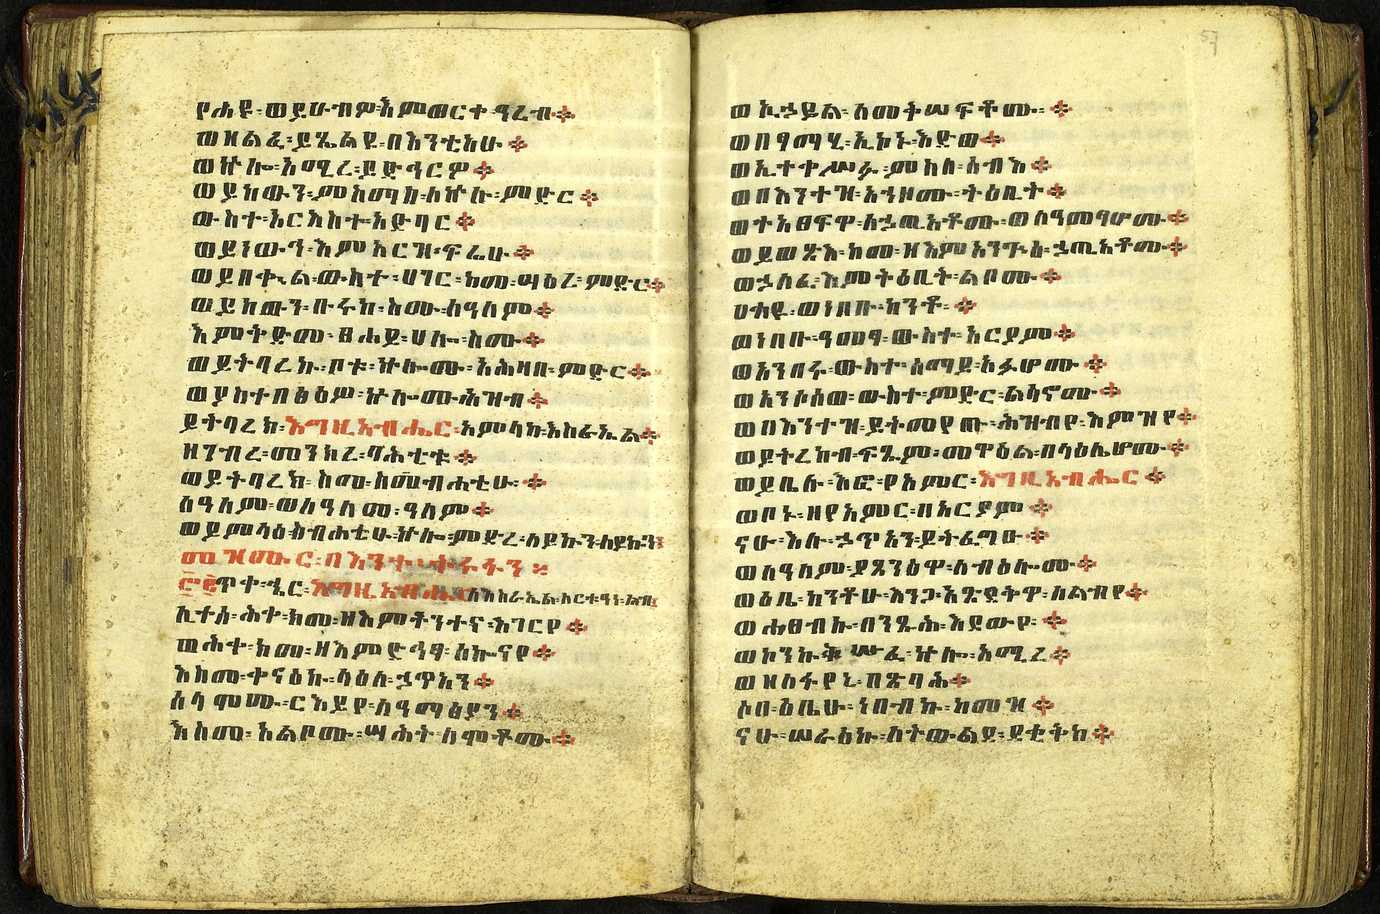 የሐዩ፡ወይሁብዎ፡እምወርቀ፡ዓረብ።
ወዘልፈ፡ይጼልዩ፡በእንቲአሁ።
ወኵሎ፡አሚረ፡ይድኅርዎ።
ወይከውን፡ምስማክ፡ለኵሉ፡ምድር።
ውስተ፡አርእስተ፡አድባር።
ወይነውኅ፡እምአርዝ፡ፍሬሁ።
ወይበቍል፡ውስተ፡ሀገር፡ከመ፡ሣዕረ፡ምድር።
ወይከውን፡ቡሩከ፡ስሙ፡ለዓለም።
እምቅድመ፡ፀሐይ፡ሀሎ፡ስሙ።
ወይትባረኩ፡ቦቱ፡ኵሎሙ፡አሕዛበ፡ምድር።
ወያስተበፅዕዎ፡ኵሎሙ፡ሕዝብ።
ይትባረክ፡እግዚአብሔር፡አምላከ፡እስራኤል።
ዘገብረ፡መንክረ፡ባሕቲቱ።
ወይትባረክ፡ስመ፡ስብሐቲሁ፡።
ለዓለም፡ወለዓለመ፡ዓለም።
ወይምላዕ፡ስብሐቲሁ፡ኵሎ፡ምድረ፡ለይኩን፡ለይኩን፡
መዝሙር፡በእንተ፡ተሩፋን፡
፸፪ጥቀ፡ኄር፡እግዚአብሔር፡ለእስራኤል፡ለርቱዓነ፡ልብ፡
ሊተሰ፡ሕቀ፡ከመ፡ዘእምተንተና፡እገርየ።
ወሕቀ፡ከመ፡ዘእምድኅፃ፡ሰኰናየ።
እስመ፡ቀናዕኩ፡ላዕለ፡ኃጥአን።
ሰላሞሙ፡ርእይየ፡ለዓማፅያን።
እስመ፡አልቦሙ፡ሣሕተ፡ለሞቶሙ።
ወኢኃይል፡አመ፡ትሠፍቶሙ፡።
ወበፃማሂ፡ኢኮኑ፡እድወ።
ወኢተቀሥፉ፡ምስለ፡ሰብእ።
ወበእንተዝ፡አኀዞሙ፡ትዕቢት።
ወተአፀፍዋ፡ለኃጢአቶሙ፡ወለዓመፃሆሙ።
ወይወፅእ፡ከመ፡ዘእምአንጕዕ፡ኃጢአቶሙ።
ወኃለፈ፡እምትዕቢት፡ልቦሙ።
ሀለዩ፡ወነበቡ፡ከንቶ፡።
ወነበቡ፡ዓመፃ፡ውስተ፡አርያም።
ወአንበሩ፡ውስተ፡ሰማይ፡አፉሆሙ።
ወአንሶሰወ፡ውስተ፡ምድር፡ልሳኖሙ።
ወበእንተዝ፡ይትመየጡ፡ሕዝብየ፡እምዝየ።
ወይትረከብ፡ፍጹም፡መዋዕል፡በላዕሌሆሙ።
ወይቤሉ፡እፎ፡የአምር፡እግዚአብሔር።
ወቦኑ፡ዘየአምር፡በአርያም።
ናሁ፡እሉ፡ኃጥአን፡ይትፌግዑ።
ወለዓለም፡ያጸንዕዋ፡ለብዕሎሙ።
ወዕቤ፡ከንቶሁ፡እንጋ፡አጽደቅዋ፡ለልብየ።
ወሐፀብኩ፡በንጹሕ፡እደውየ፡።
ወኮንኩ፡ቅሡፈ፡ኵሎ፡አሚረ።
ወዘለፋየኒ፡በጽባሕ።
ሶበ፡ዕቤሁ፡ነበብኩ፡ከመዝ።
ናሁ፡ሠራዕኩ፡ለትውልደ፡ደቂቅከ።
57